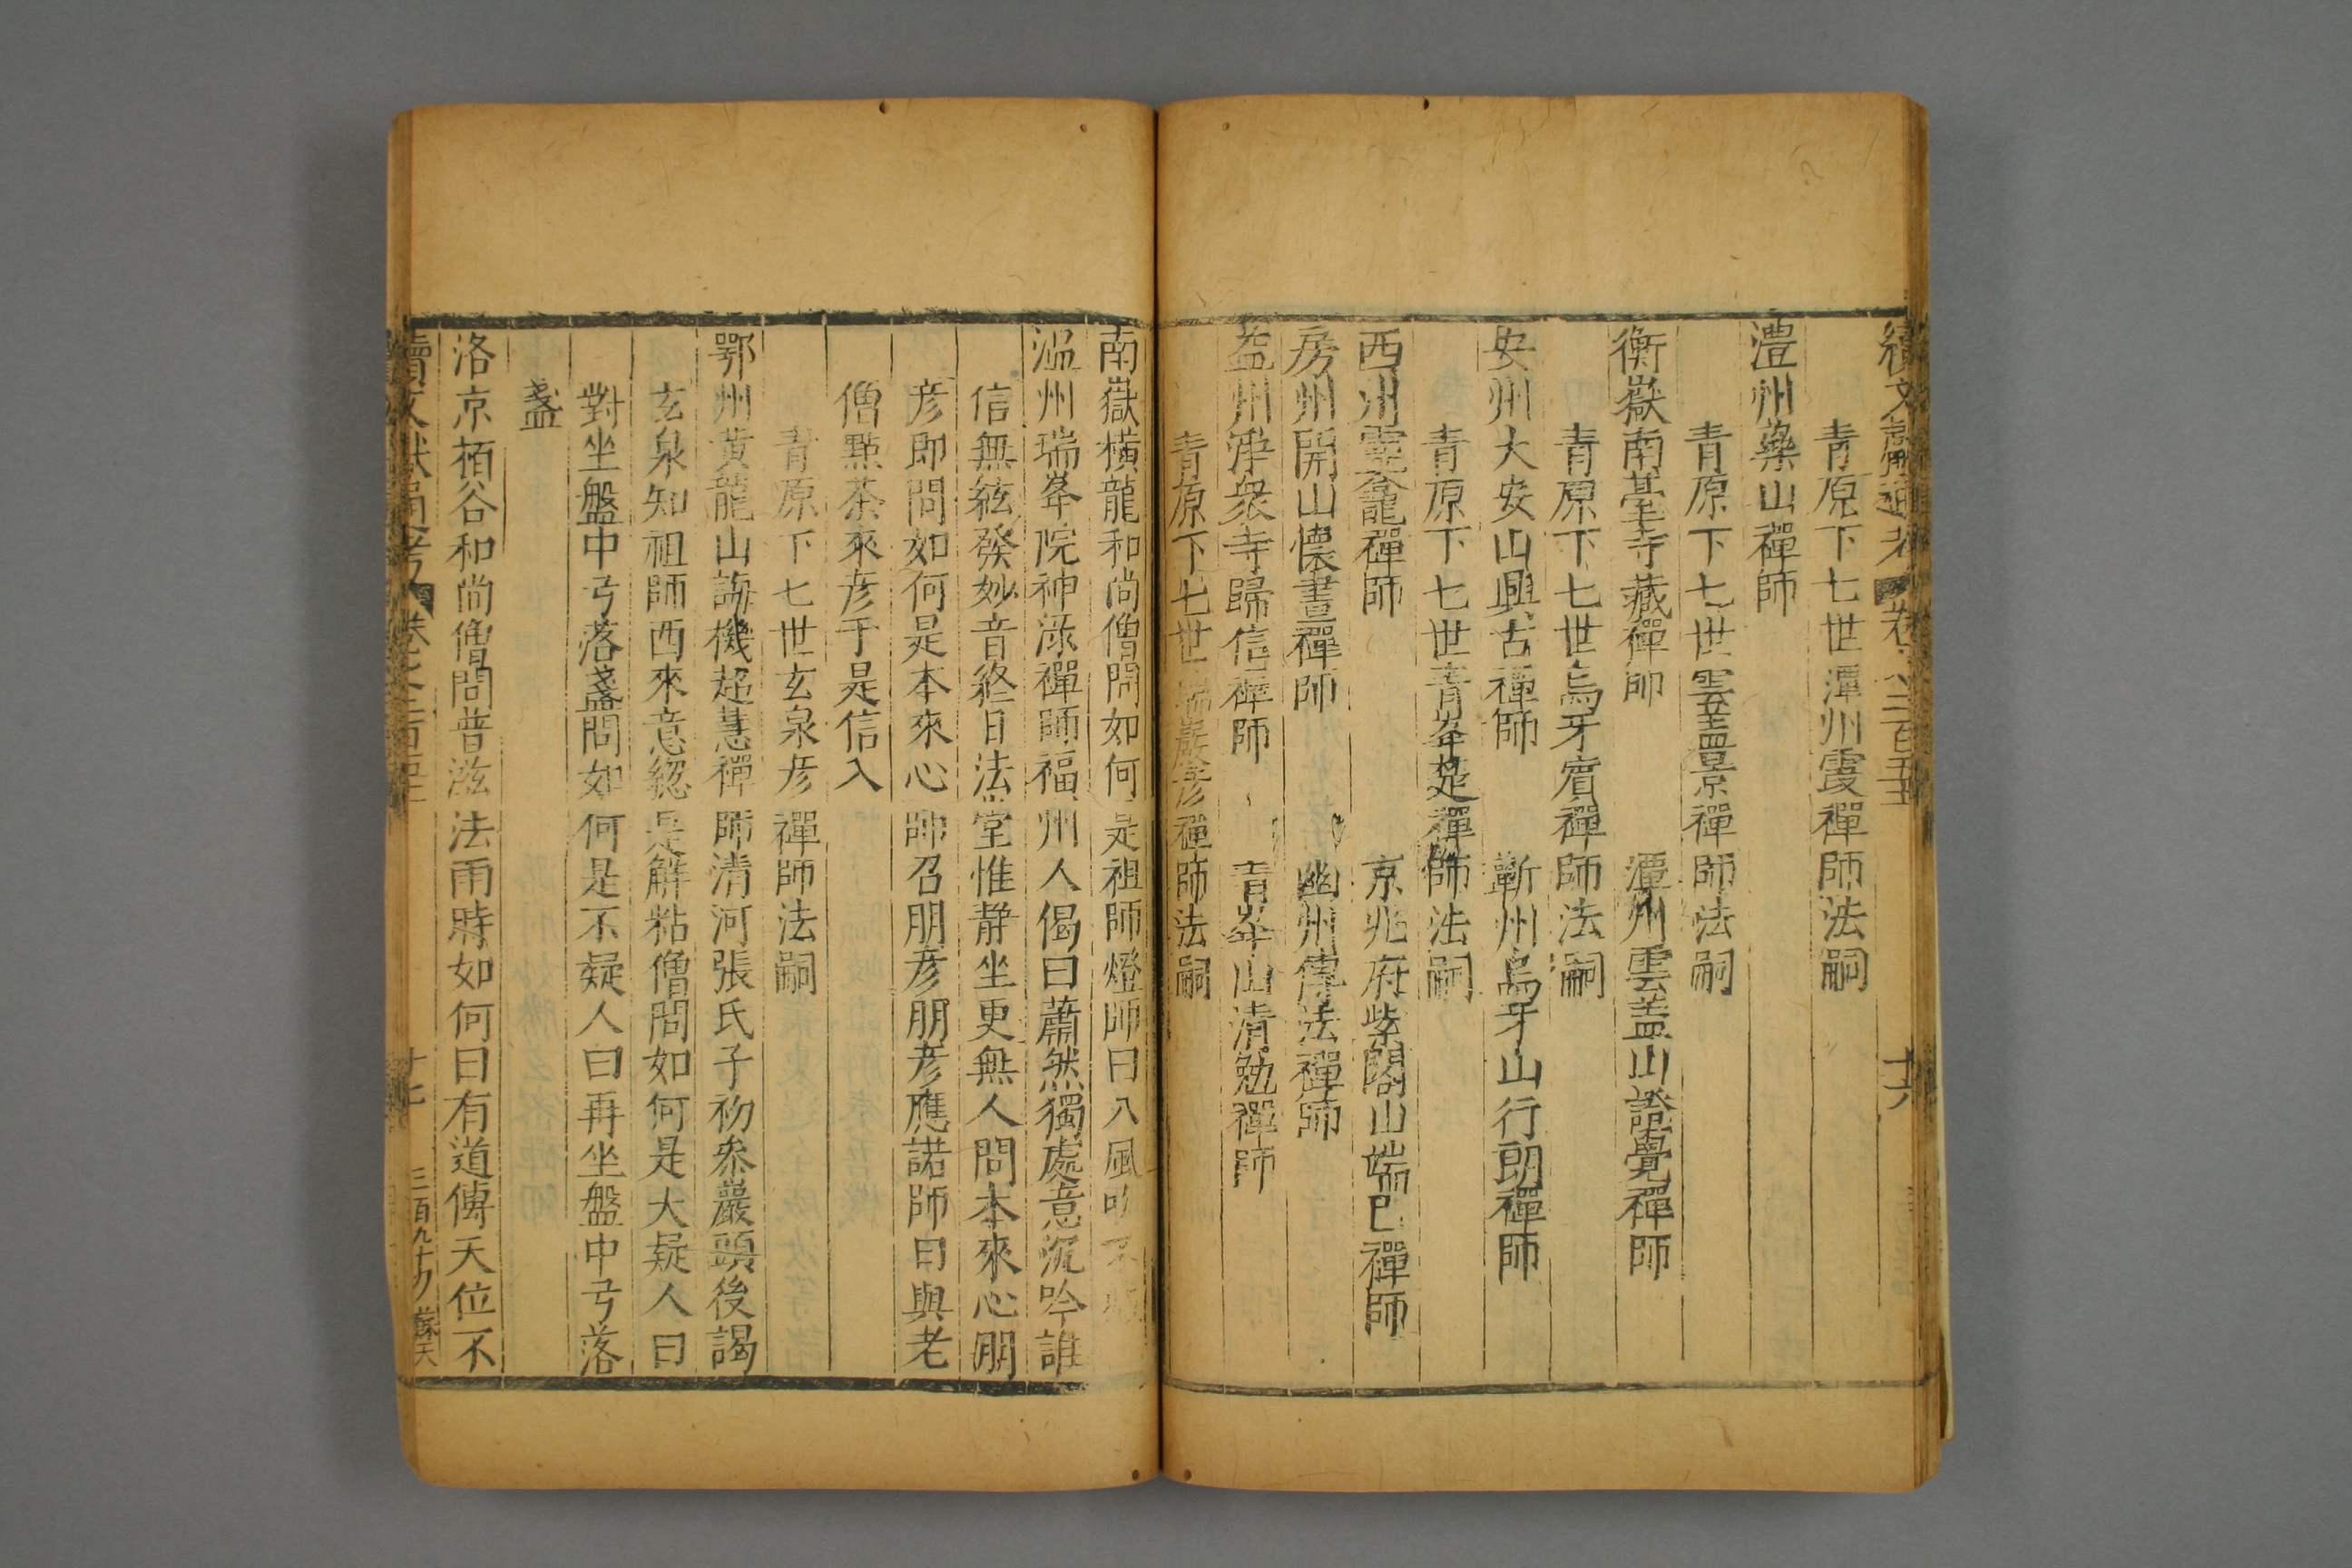 續文獻通考 卷之二百五十 十六
青原下七世潭州霞禪師法嗣
澧州藥山禪師
青原下七世雲蓋景禪師法嗣
衡嶽南臺寺藏禪師 潭州雲盖山證覺禪師
青原下七世烏牙賓禪師法嗣
安州大安山興古禪師 蘄州烏牙山行朗禪師
青原下七世青峯楚禪師法嗣
西州靈龕禪師 京兆府紫閣山端巳禪師
房州開山懷晝禪師 幽州傳法禪師
益州淨衆寺歸信禪師 青峯山清勉禪師
青原下七世瑞巖彦禪師法嗣
南嶽橫龍和尚僧問如何是祖師燈師曰八風吹不
溫州瑞峯院神祿禪師福州人偈曰蕭然獨處意沉吟誰
信無絃發妙音終日法堂惟静坐更無人問本來心朋
彦即問如何是本來心師召朋彦朋彦應諾師曰與老
僧點茶來彦于是信入
青原下七世玄泉彦禪師法嗣
鄂州黃龍山誨機超慧禪師清河張氏子初叅巖頭後謁
玄泉知祖師西來意緫是解粘僧問如何是大疑人曰
對坐盤中弓落盞問如何是不疑人曰再坐盤中弓落
盞
洛京栢谷和尚僧問普滋法雨時如何曰有道傳天位不
續文獻通考 卷之二百五十 十七 三百九十九 蘇天